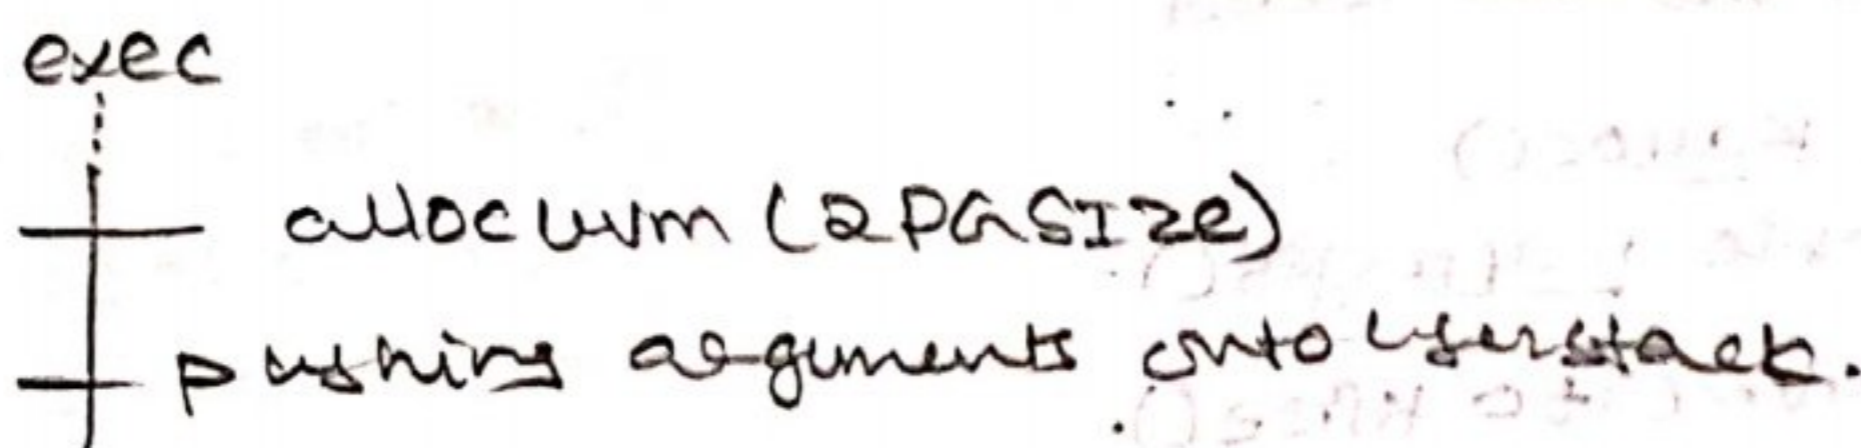 exec
allocuvm (2PGSIZE)
pushing arguments onto userstack.